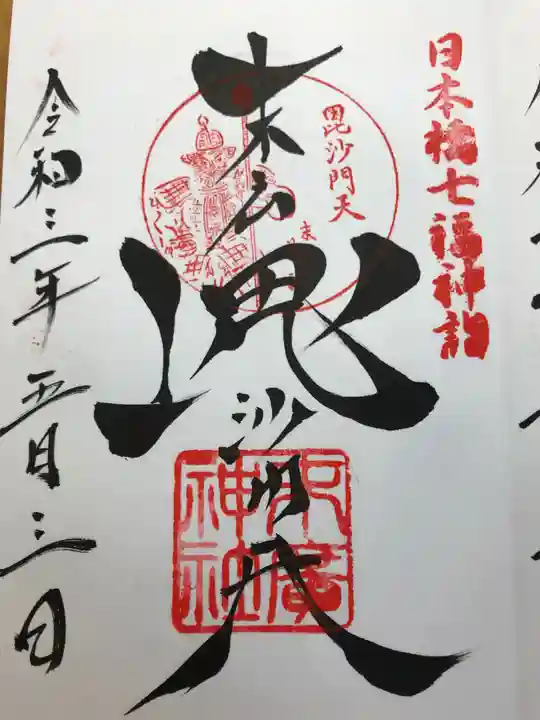 日本橋七福神詣
毘沙門天
末広
毘沙門天
神社
令和三年五月三日